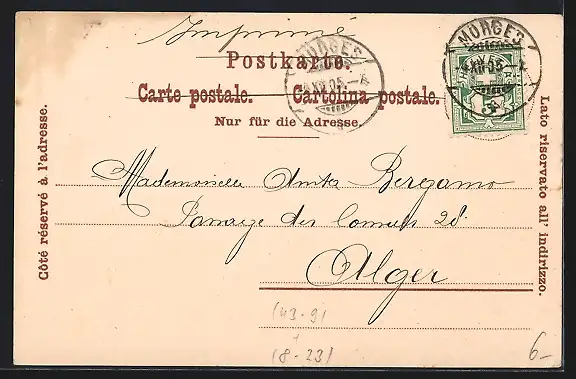 Imprimé
Postkarte.
Carte postale. Cartolina postale.
Nur für die Adresse.
Côté réservé à l'adresse.
Lato riservato all' indirizzo.
MORGES
XII 05
MORGES
XII 05
5
Mademoiselle Anita Bergamo
des 28
Alger
(43-9)
(8-23)
6-